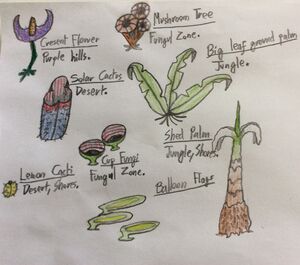 Cresent Flower
Purple hills.
Mushroom Tree
Fungul Zone.
Big leaf ground palm
Jungle.
Solar Cactus
Desert.
Cup Fungi
Fungul Zone.
Shed Palm
Jungle, Shores.
Lemon Cacti
Desert, Shores.
Balloon Flogs